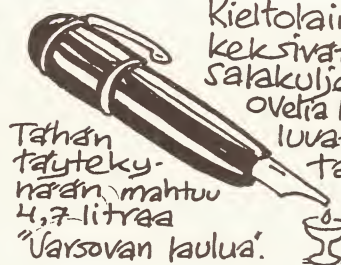 Kieltolain
keksivat
salakulje
ovelia
luva
ta
Tähän
täyteky-
nään mahtuu
4,7 litraa
"Varsovan laulua".